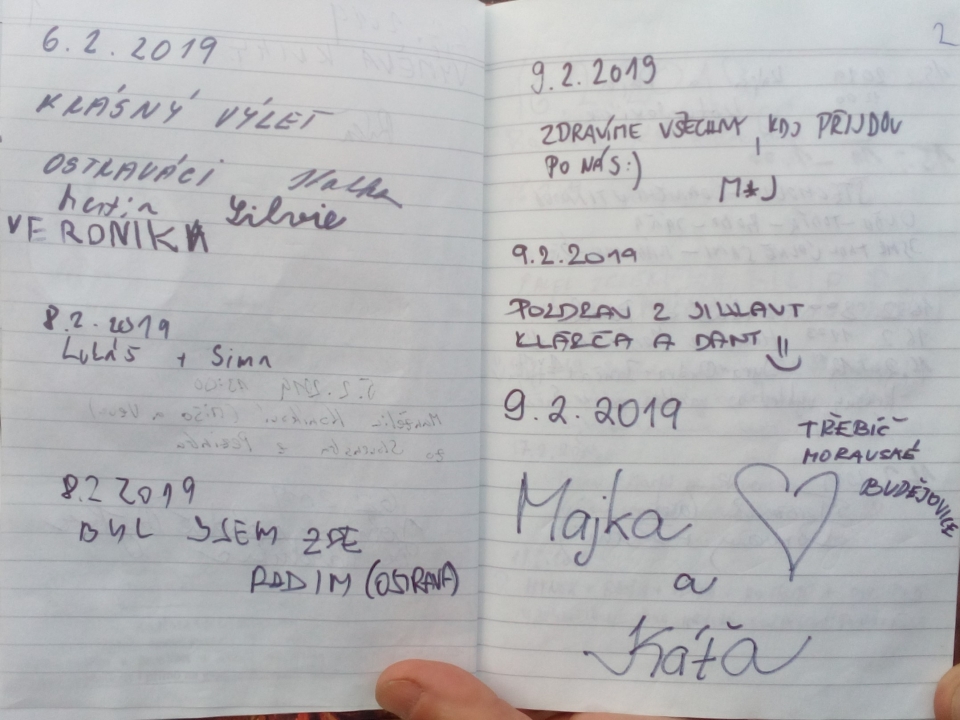 6.2.2019
KRÁSNÝ VÝLET
OSTRAVÁCI
Silvie
VERONIKA
8.2.2019
Lukáš + Sima
8.2 2019
BYL JSEM ZDE
RADIM (OSTRAVA)
2
9.2.2019
ZDRAVÍME VŠECHNY, KDJ PŘIJDOU
PO NÁS:)
M+J
9.2.2019
POZDRAV Z JIHLAVY
KLÁRČA A DANY
9.2.2019
TŘEBÍČ
MORAVSKÉ
BUDĚJOVICE
Majka
a
Káťa